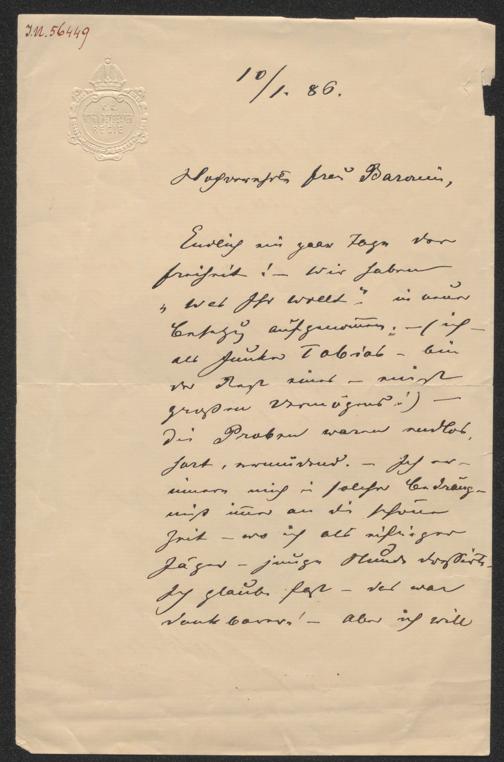 I.N. 56449
K.K.
HOFTHEATER
REGIE
10/1. 86.
Hochverehrte Frau Baronin,
Endlich ein paar Tage der
Freiheit! – Wir haben
„Was Ihr wollt" in neuer
Besetzg aufgenommen. – (ich –
als Junker Tobias – bin
der Rest eines – einst
großen Vermögens!) –
Die Proben waren endlos,
hart, ermüdend. – Ich er-
innere mich in solcher Bedräng-
niß immer an die schöne
Zeit – wo ich als eifriger
Jäger – junge Hunde dressirte.
Ich glaube fast – das war
dankbarer! – Aber ich will